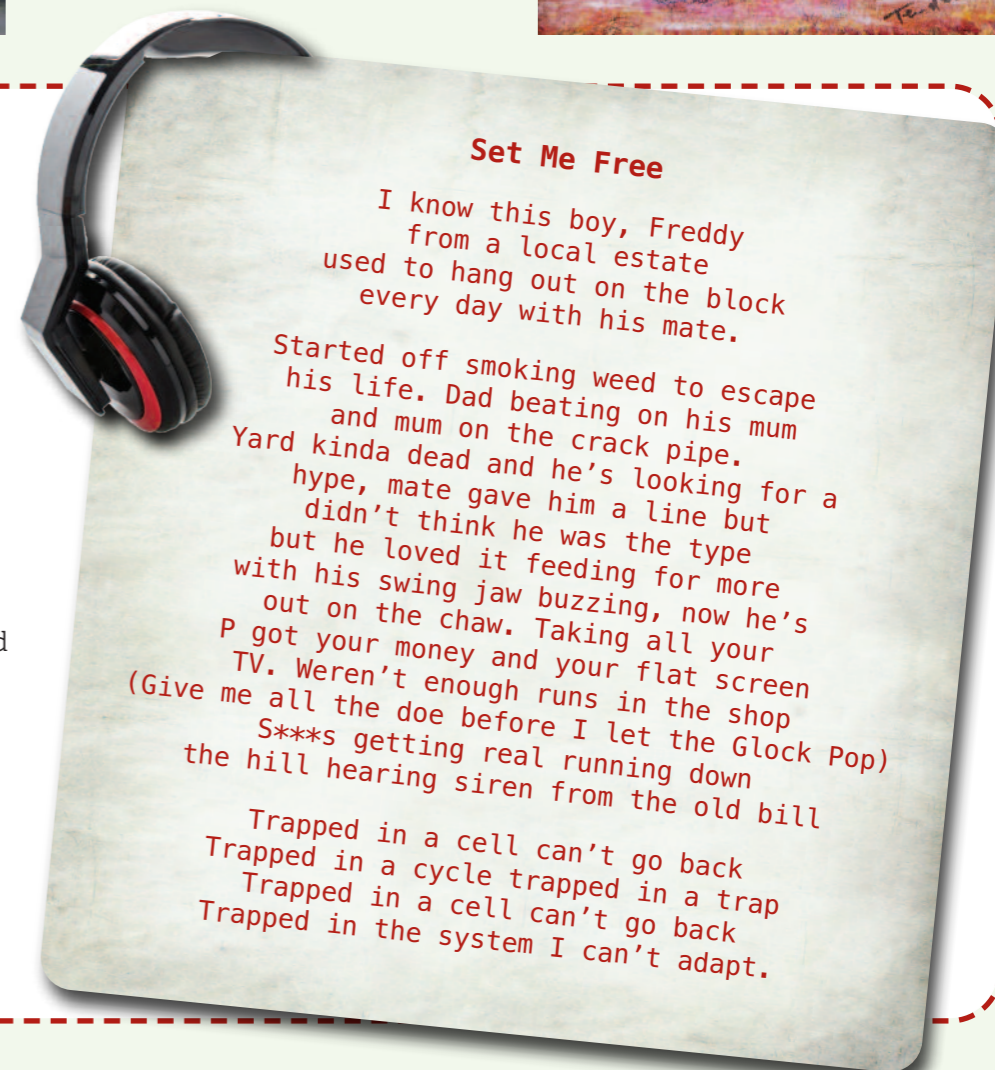 Set Me Free
I know this boy, Freddy
from a local estate
used to hang out on the block
every day with his mate.
Started off smoking weed to escape
his life. Dad beating on his mum
and mum on the crack pipe.
Yard kinda dead and he’s looking for a
hype, mate gave him a line but
didn’t think he was the type
but he loved it feeding for more
with his swing jaw buzzing, now he’s
out on the chaw. Taking all your
P got your money and your flat screen
TV. Weren’t enough runs in the shop
(Give me all the doe before I let the Glock Pop)
S***s getting real running down
the hill hearing siren from the old bill
Trapped in a cell can’t go back
Trapped in a cycle trapped in a trap
Trapped in a cell can’t go back
Trapped in the system I can’t adapt.